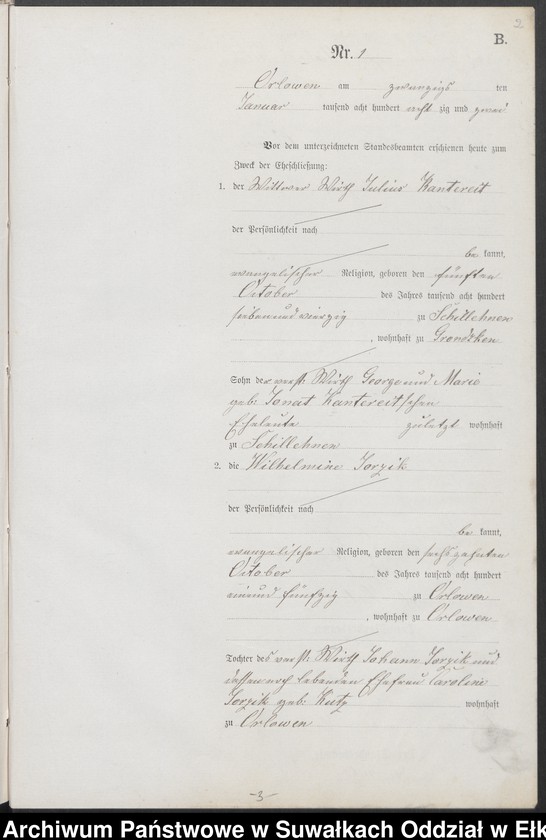 2
B.
Nr. 1
Orlowen am zwanzigs ten
Januar tausend acht hundert acht zig und zwei
Vor dem unterzeichneten Standesbeamten erschienen heute zum
Zweck der Eheschließung:
1. der Wittwer Wirth Julius Kantereit
der Persönlichkeit nach
be kannt,
evangelischer Religion, geboren den fünften
October des Jahres tausend acht hundert
siebenundvierzig zu Schillehnen
, wohnhaft zu Grondzken
Sohn der verst. Wirth George und Marie
geb: Jonat Kantereit'schen
Eheleute zuletzt wohnhaft
zu Schillehnen
2. die Wilhelmine Jorzik
der Persönlichkeit nach
be kannt,
evangelischer Religion, geboren den sechszehnten
October des Jahres tausend acht hundert
einund fünfzig zu Orlowen
, wohnhaft zu Orlowen
Tochter des verst. Wirth Johann Jorzik und
dessen noch lebenden Ehefrau Caroline
Jorzik geb: Kutz wohnhaft
zu Orlowen
-3-
Archiwum Państwowe w Suwałkach Oddział w Ełk